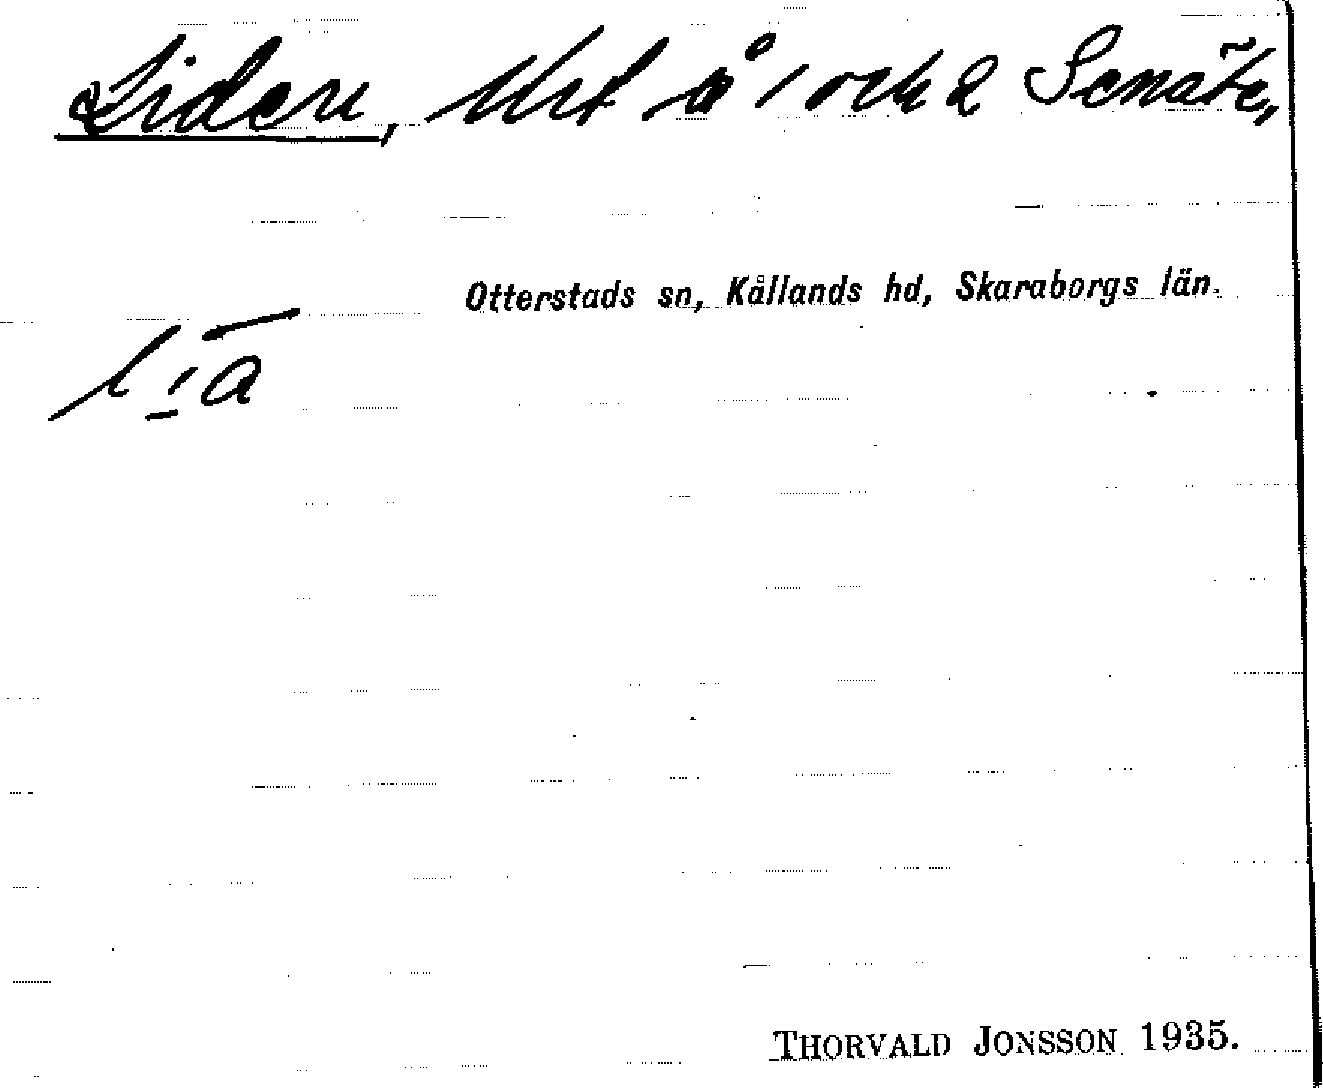 Liden, Urf å 1 och 2 Senäte,
Otterstads sn, Kållands hd, Skaraborgs län.
THORVALD JONSSON 1935.